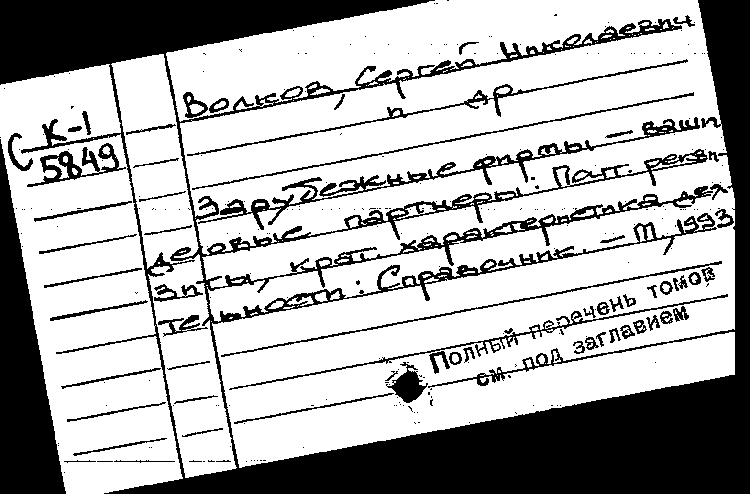 С К-1
5849
Волков, Сергей Николаевич
и др.
Зарубежные фирмы — ваши
деловые партнеры: Пат. рекви-
зиты, крат. характеристика дея-
тельности: Справочник. — М, 1993
Полный перечень томов
см. под заглавием